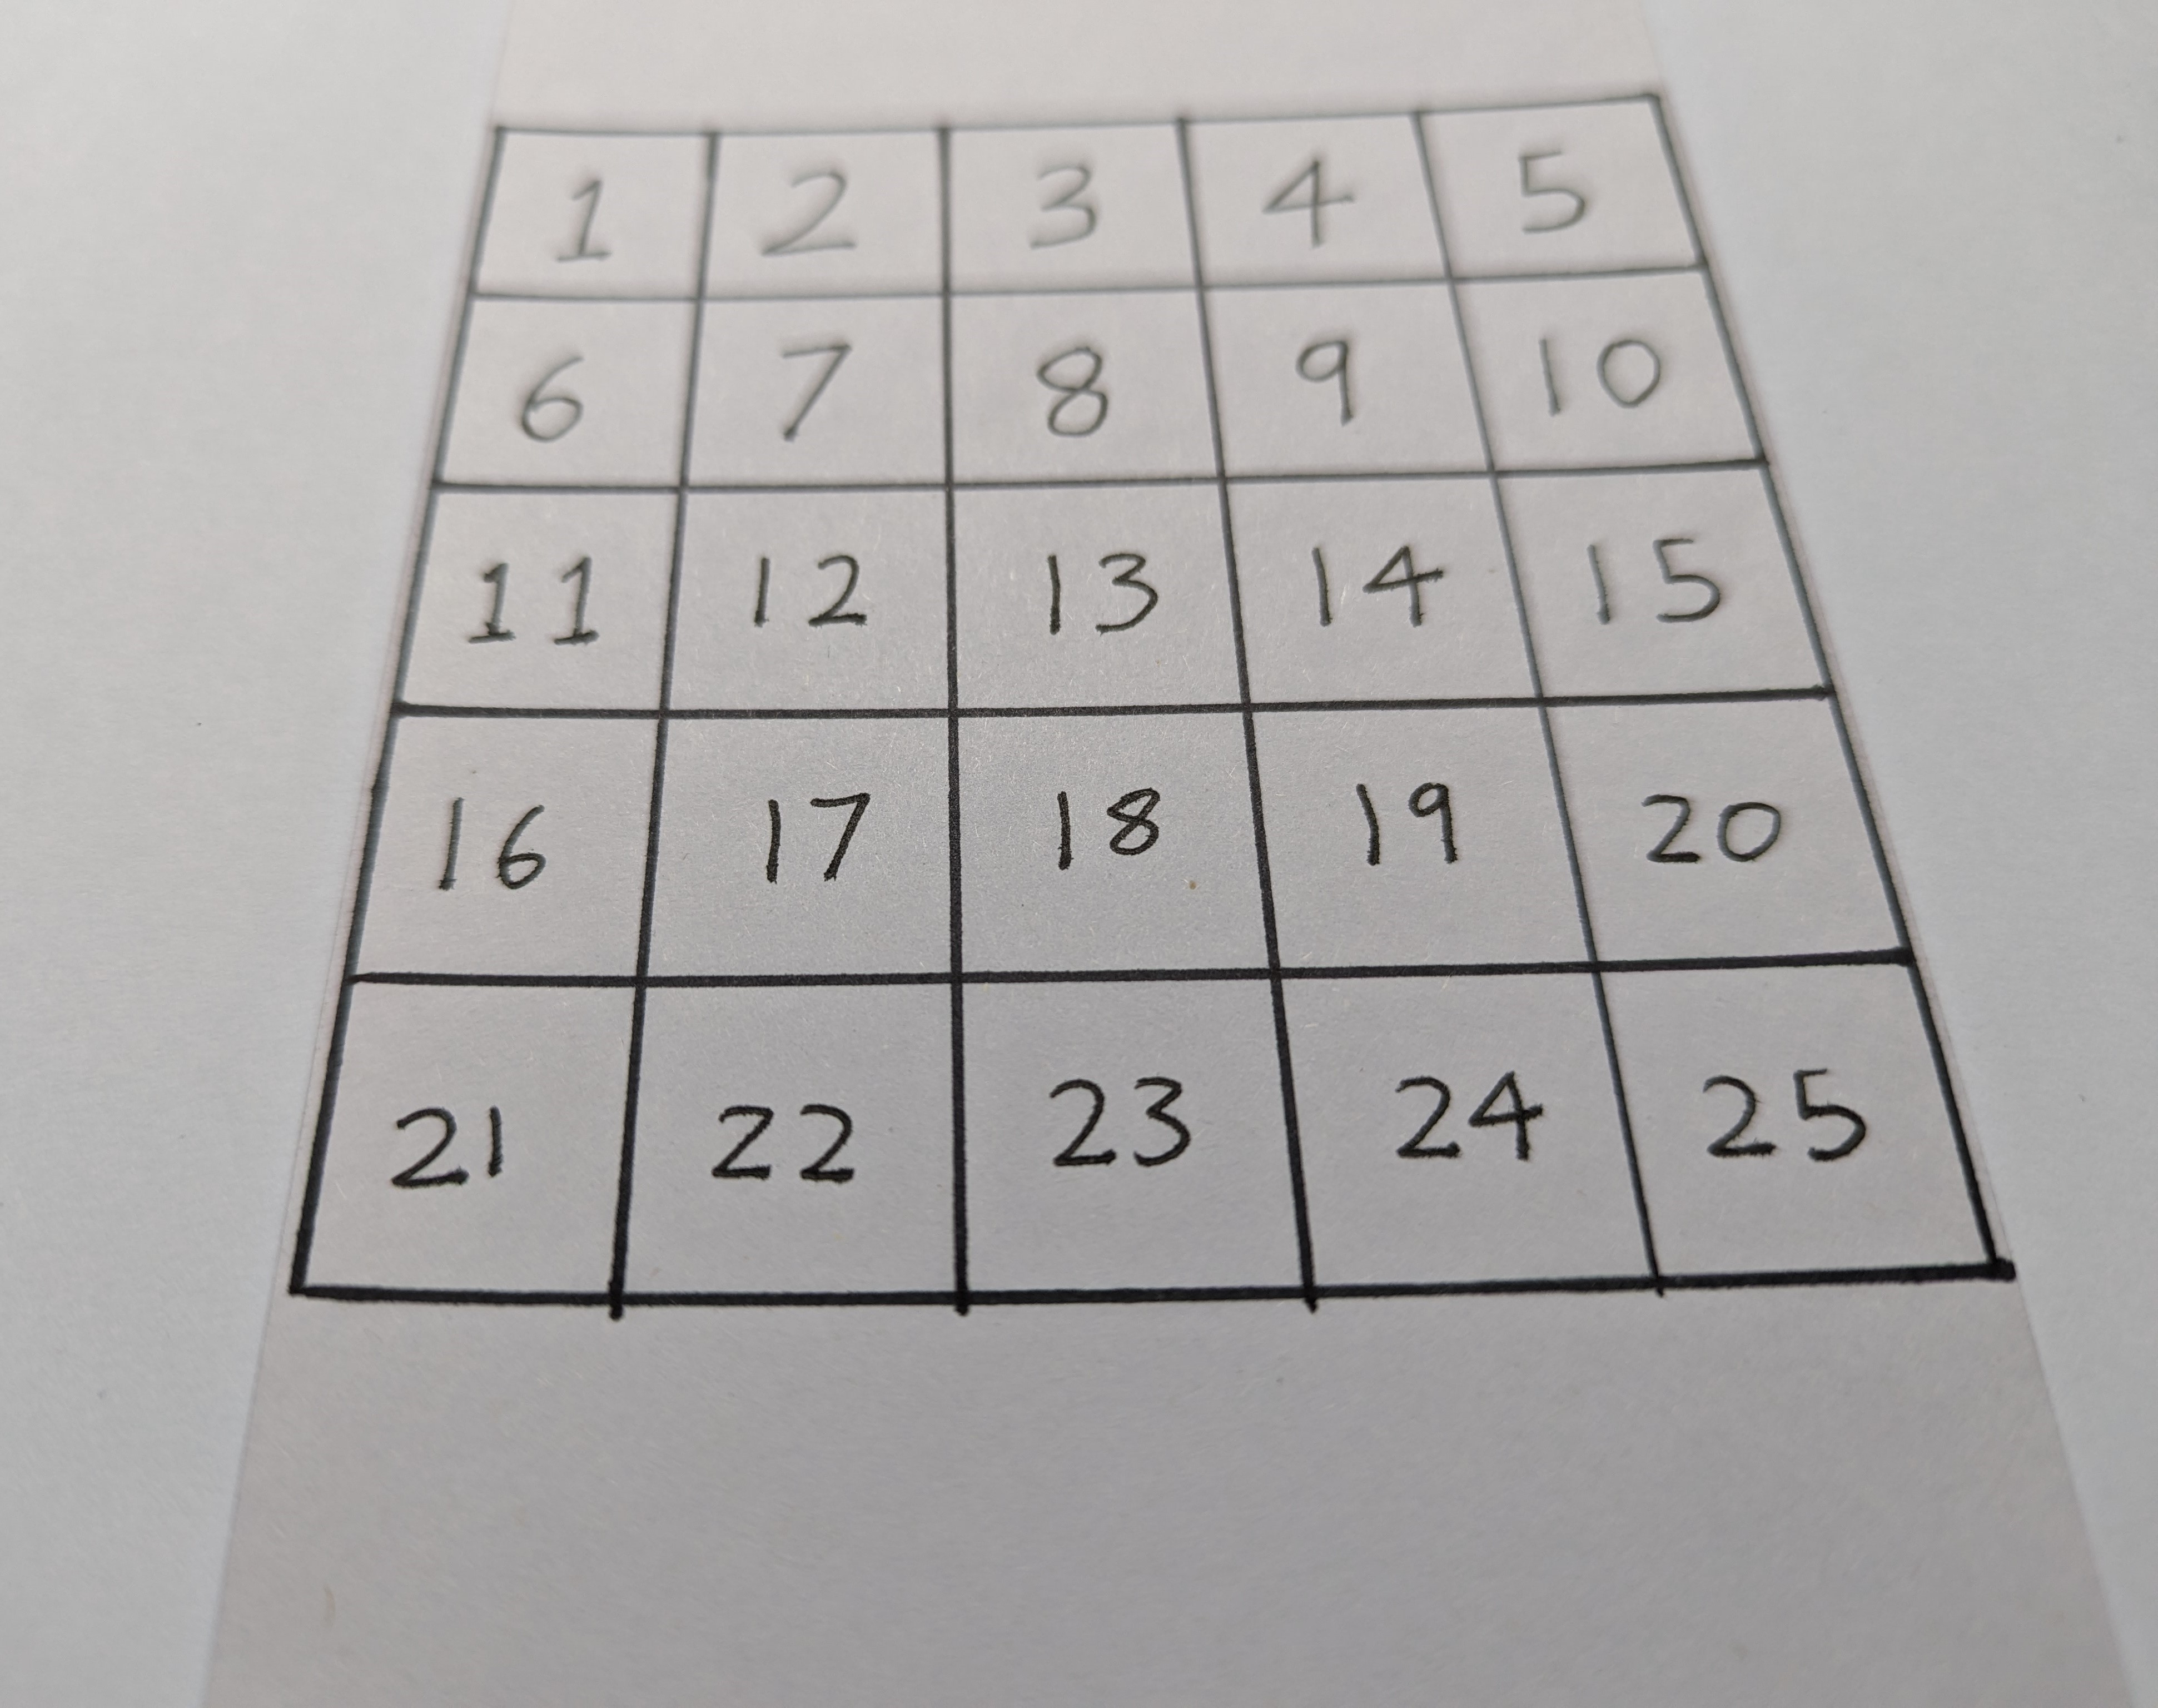 1 2 3 4 5
6 7 8 9 10
11 12 13 14 15
16 17 18 19 20
21 22 23 24 25